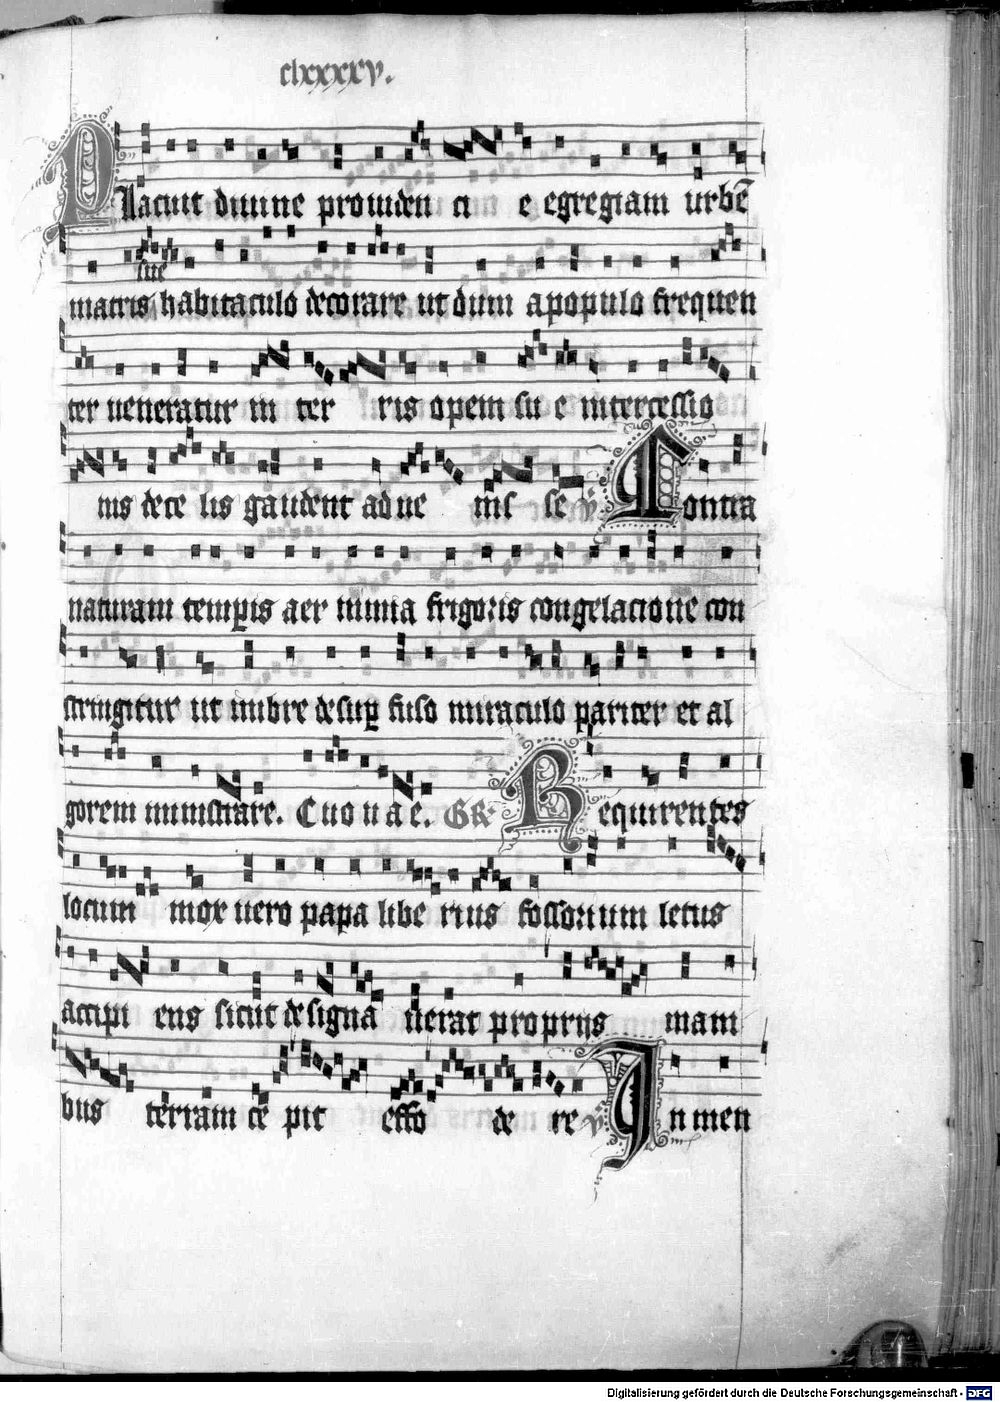 clxxxxv.
Placuit diuine prouiden ci e egregiam urbē
sue
matris habitaculo decorare ut dum a populo frequen
ter ueneratur in ter ris opem su e intercessio
nis de ce lis gaudent ad ue nis se V Contra
naturam temꝑis aer nimia frigoris congelacione con
stringitur ut imbre desuꝑ fuso miraculo pariter et al
gorem ministrare. Euouae. GR Requirentes
locum mox uero papa libe rius fossorium letus
accipi ens sicut designa uerat proprijs mani
bus terram ce pit effo de re V In men
Digitalisierung gefördert durch die Deutsche Forschungsgemeinschaft - DFG